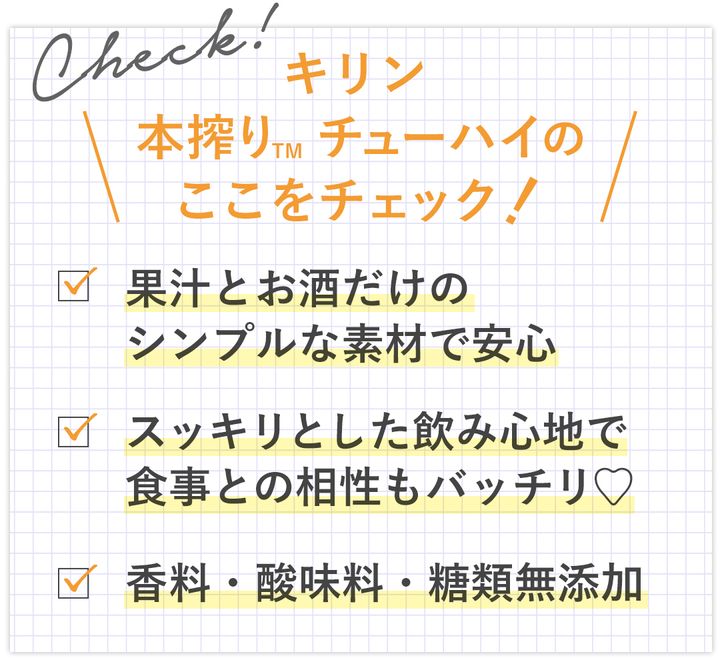 Check!
キリン
本搾り™ チューハイの
ここをチェック!
果汁とお酒だけの
シンプルな素材で安心
スッキリとした飲み心地で
食事との相性もバッチリ♡
香料・酸味料・糖類無添加